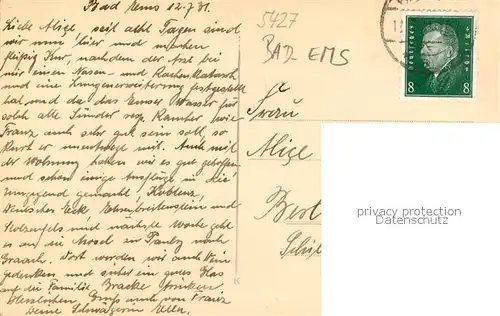 Bad Ems 12.7.31.
Liebe Alize, seit acht Tagen sind
wir nun hier und machen
fleißig Kur, nachdem der Arzt bei
mir einen Nasen- und Rachen Katarrh
und eine Lungenerweiterung festgestellt
hat und da das Emser Wasser für
solch alte Sünder wie
Franz auch sehr gut sein soll, so
kurt er unentwegt mit. Auch mit
der Wohnung haben wir es gut getroffen
und schon einige Ausflüge in die
Umgegend gemacht, Koblenz,
Deutsches Eck, Ehrenbreitenstein und
Stolzenfels und nächste Woche geht
es an die Mosel zu Pauly nach
Graach. Dort werden wir auch Dein
gedenken und sicher ein gutes Glas
auf die Familie Bracke trinken.
Herzlichen Gruß auch von Franz
Deine Schwägerin Ella.
5427
BAD-EMS
Deutsches Reich
8 8
Frau
Alize
Berl
Schil
privacy protection